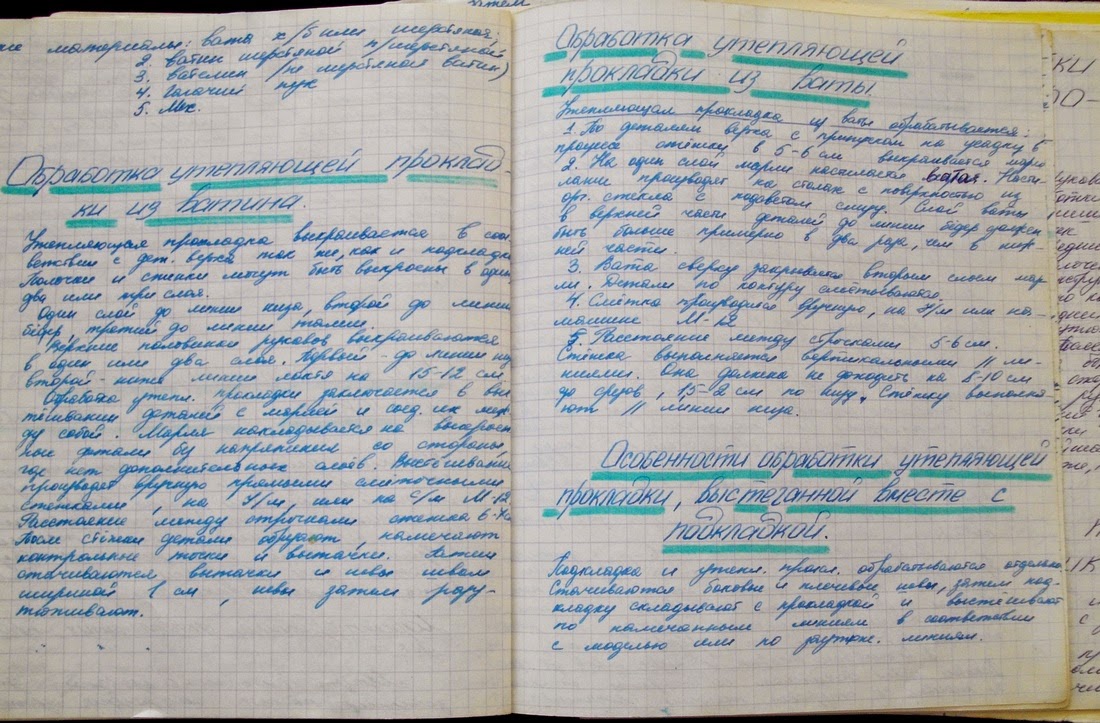 ие материалы: вата х/б или шерстяной;
2. ватин шерстяной п/шерстяной
3. вателин (не шерстяной ватин)
4. Гагачий пух
5. Мех.
Обработка утепляющей проклад-
ки из ватина.
Утепляющая прокладка выкраивается в соот
ветствии с дет. верха так же, как и подкладка
Полочки и спинки могут быть выкроены в один
два или три слоя.
Один слой до линии низа, второй до линии
бёдер, третий до линии талии.
Верхние половинки рукавов выкраиваются
в один или два слоя. Первый - до линии низа
второй - ниже линии локтя на 15-12 см.
Обработка утепл. прокладки заключается в выс
тёгивании деталей с марлей и соед. их меж
ду собой. Марля накладывается на выкроен
ные детали без напряжения со стороны,
где нет дополнительных слоёв. Выстёгивание
производят вручную прямыми сметочными
стежками, на У/м, или на с/м М-12
Расстояние между строчками стежка 6-7с
После стёжки детали обрезают, намечают
контрольные точки и вытачки. Затем
стачиваются вытачки и швы швом
шириной 1 см, швы затем разу-
тюживают.
затем
Обработка утепляющей
прокладки из ваты.
Утепляющая прокладка из ваты обрабатывается:
1. По деталям верха с припуском на усадку в
процессе стёжки в 5-6 см выкраивается марля
2. На один слой марли настилается ватая. Насти-
лание производят на столах с поверхностью из
орг. стекла с подсветом снизу. Слой ваты
в верхней части деталей до линии бёдер должен
быть больше примерно в два раза, чем в ниж-
ней части.
3. Вата сверху закрывается вторым слоем мар-
ли. Детали по контуру смётываются.
4. Смётка производится вручную, на У/м или на
машине М-12
5. Расстояние между строчками 5-6 см.
Стёжка выполняется вертикальными // ли-
ниями. Она должна не доходить на 8-10 см
до срезов, 1,5-2 см по низу. Стёжку выполня-
ют // линии низа.
Особенности обработки утепляющей
прокладки, выстеганной вместе с
подкладкой.
Подкладка и утепл. прокл. обрабатываются отдельно
Стачиваются боковые и плечевые швы, затем под-
кладку складывают с прокладкой и выстёгивают
по намеченным линиям в соответствии
с моделью или по заутюж. линиям.